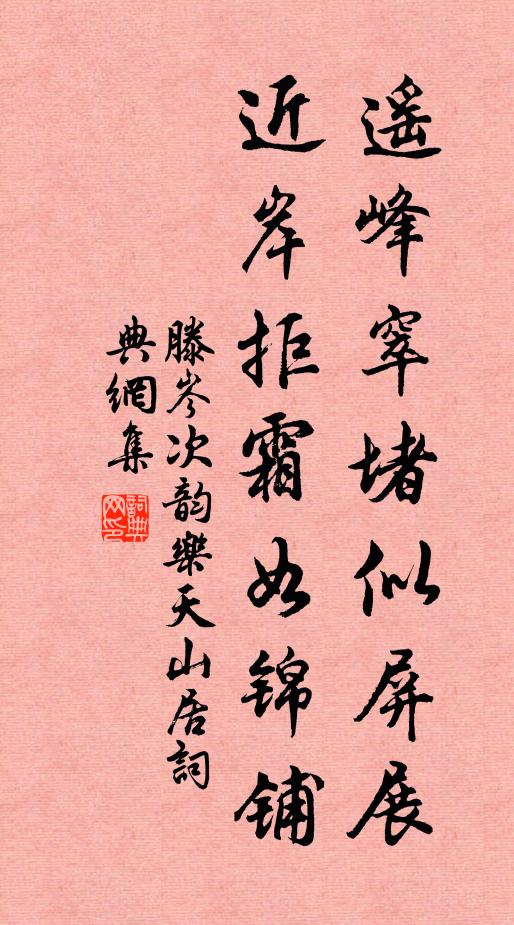 遥峰窣堵似屏展
近岸拒霜如锦铺
滕岑次韵樂天山居詞
典網集
詞典
网印